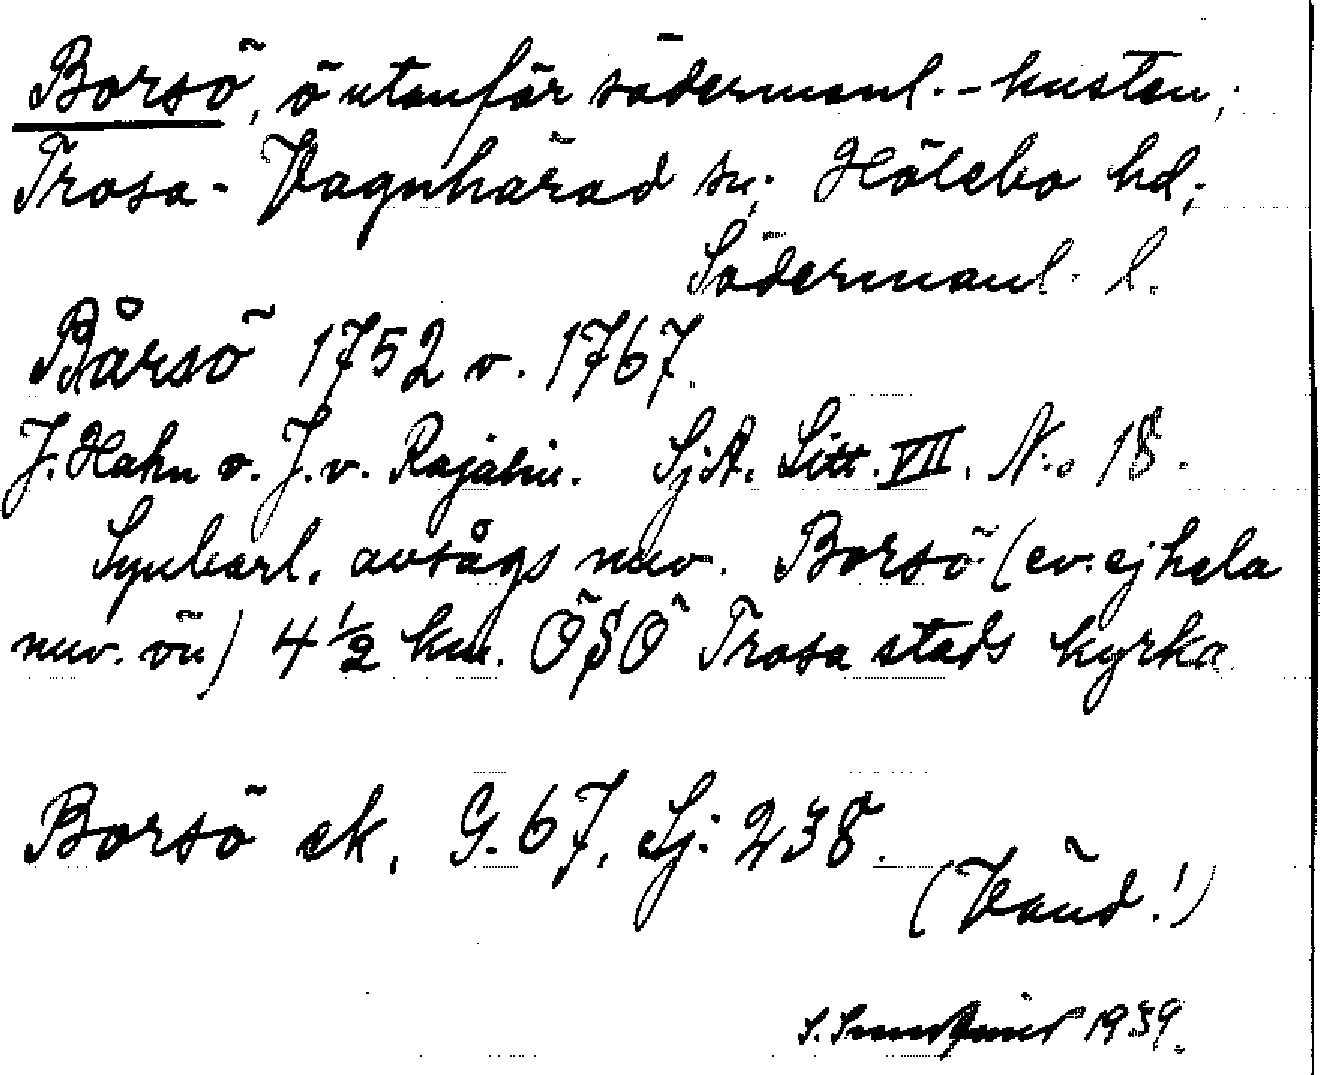 Borsö, ö utanför södermanl.-kusten,
Trosa-Vagnhärad sn; Hölebo hd;
Södermanl. l.
Bårsö 1752 o. 1767.
J. Hahn o. J. v. Rajalin. SjA. Litt. VII. No 18.
Synbarl. avsågs nuv. Borsö (ev. ej hela
nuv. ön) 4 ½ km. ÖSÖ Trosa stads kyrka
Borsö ek, G. 67, Sj: 238.
(Vänd!)
S. 1939.